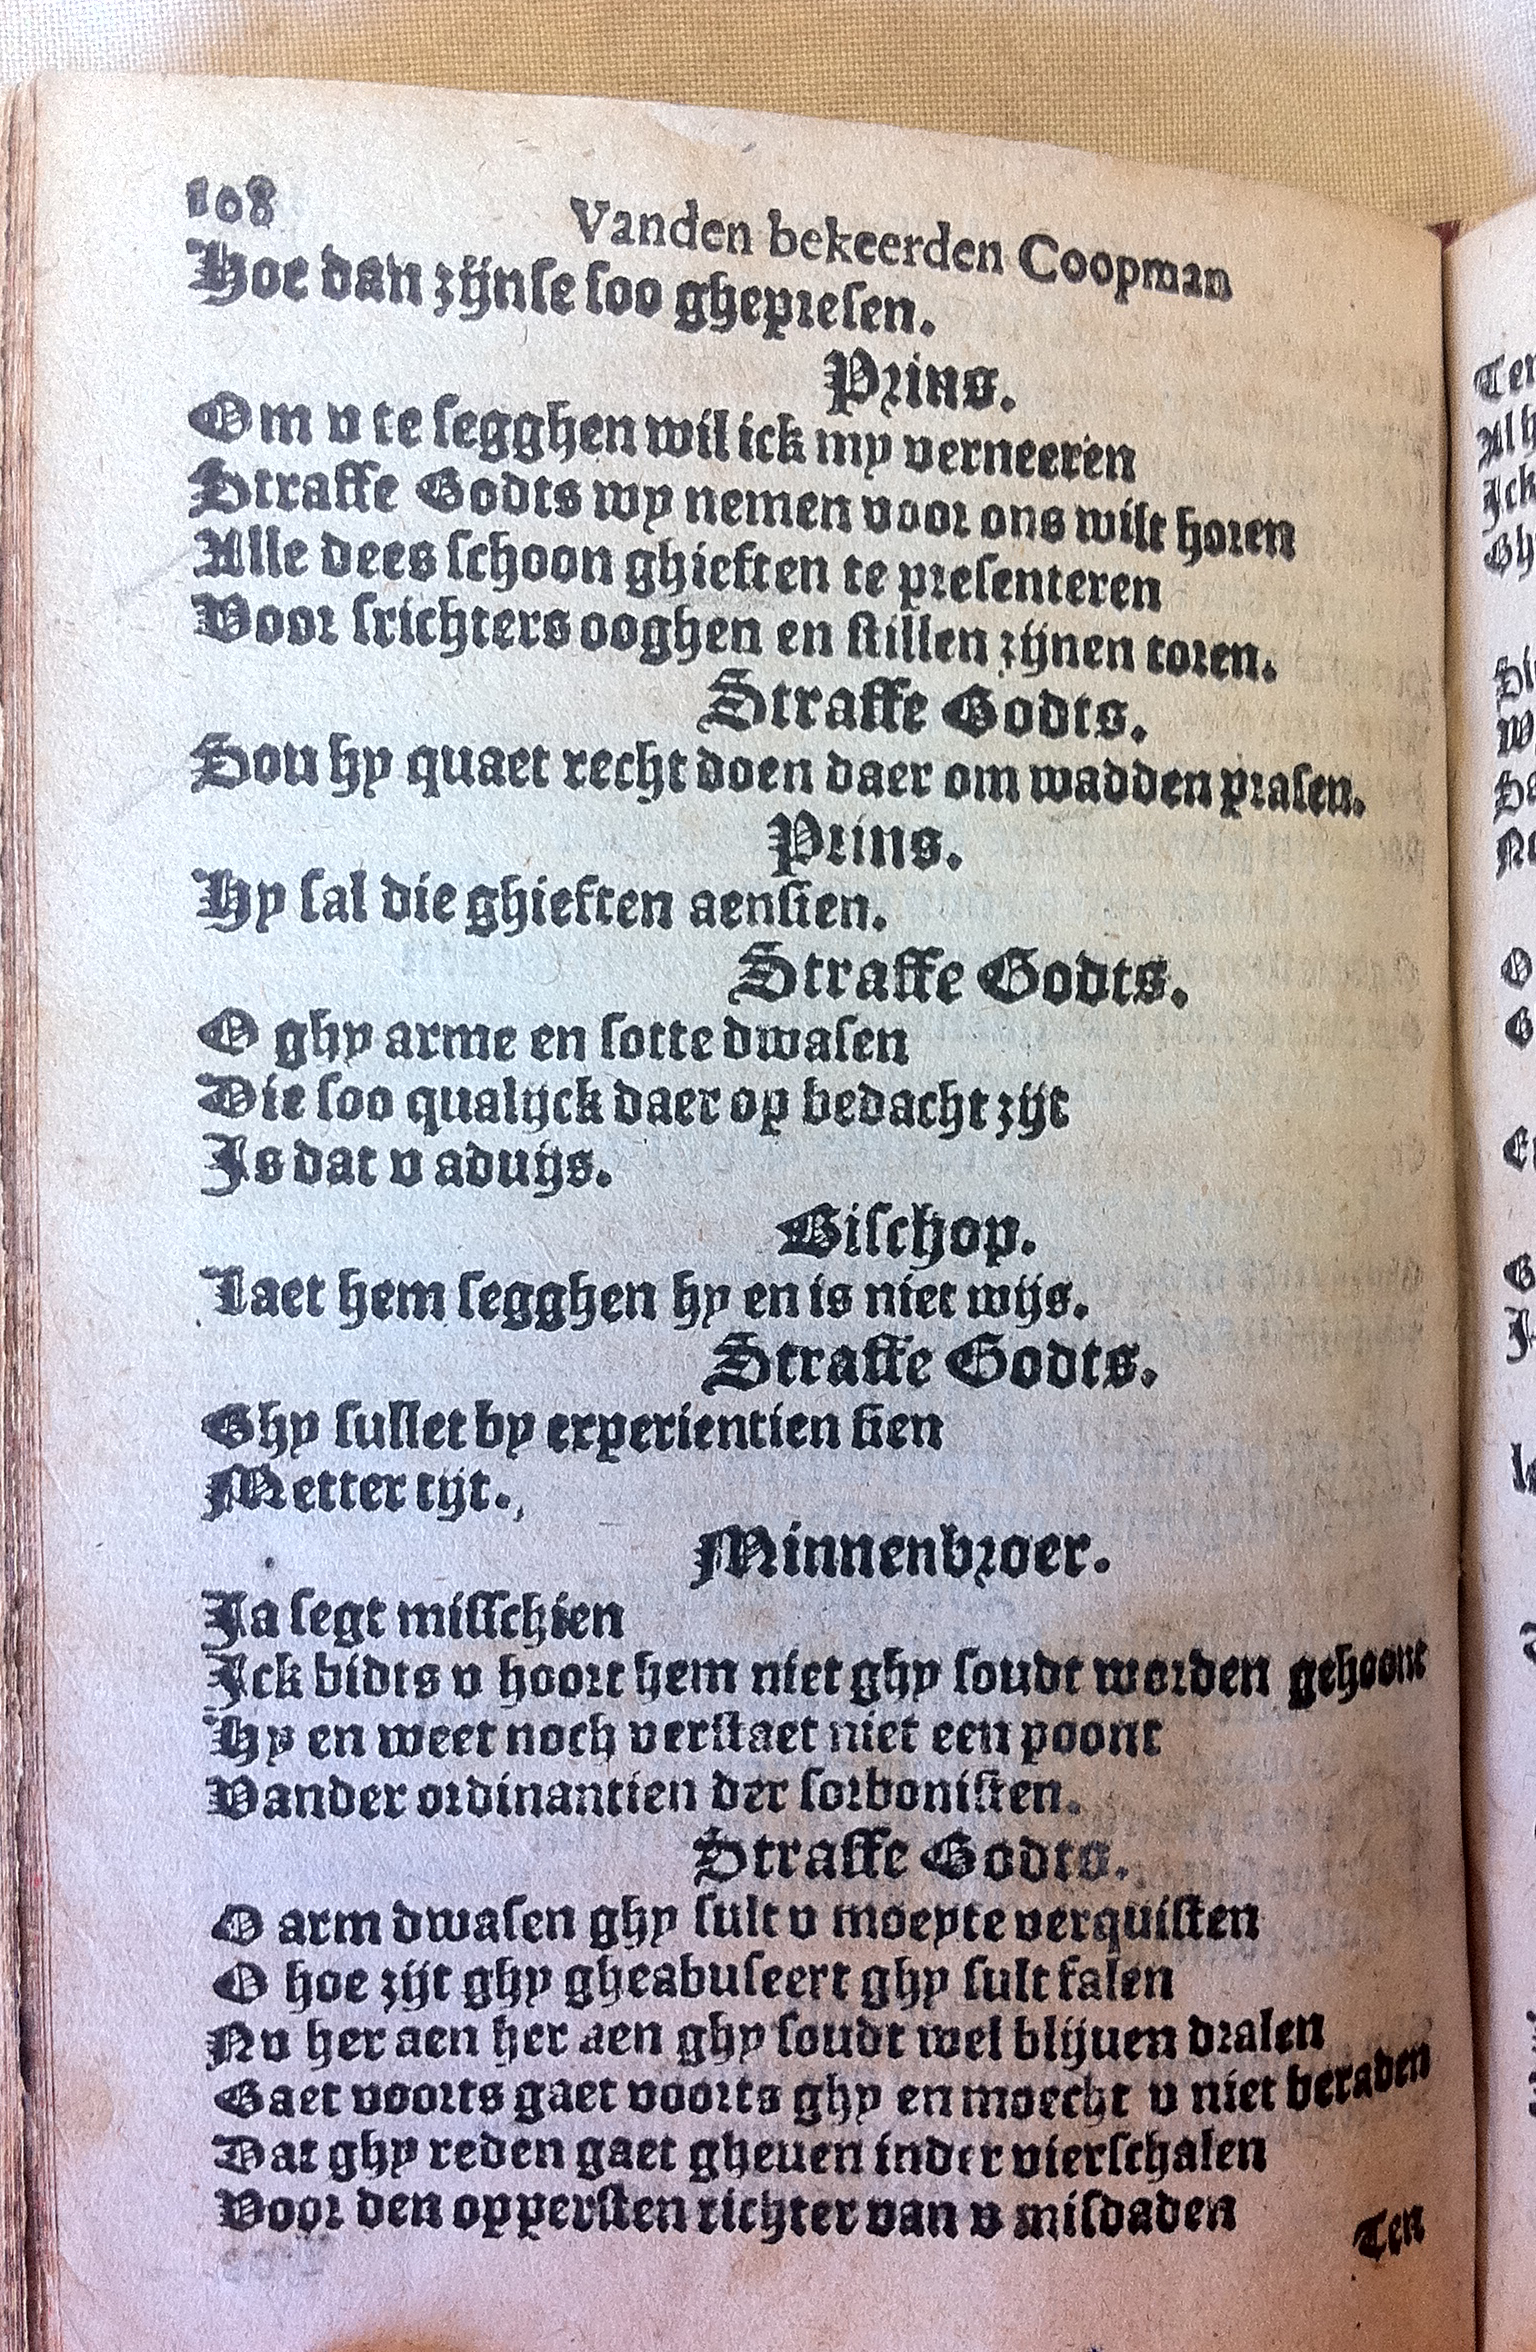 108 Vanden bekeerden Coopman
Hoe dan zijnse soo ghepresen.
Prins.
Om v te segghen wil ick my verneeren
Straffe Godts wy nemen voor ons wilt horen
Alle dees schoon ghieften te presenteren
Voor srichters ooghen en stillen zijnen toren.
Straffe Godts.
Sou hy quaet recht doen daer om wadden prasen.
Prins.
Hy sal die ghieften aensien.
Straffe Godts.
O ghy arme en sotte dwasen
Die soo qualijck daer op bedacht zijt
Is dat v aduijs.
Bischop.
Laet hem segghen hy en is niet wijs.
Straffe Godts.
Ghy sullet by experientien sien
Metter tijt.
Minnenbroer.
Ja segt misschien
Ick bidts v hoort hem niet ghy soudt worden gehoont
Hy en weet noch verstaet niet een poont
Vander ordinantien der sorbonisten.
Straffe Godts.
O arm dwasen ghy sult v moeyte verquisten
O hoe zijt ghy gheabuseert ghy sult falen
Nv her aen her aen ghy soudt wel blijuen dralen
Gaet voorts gaet voorts ghy en moecht v niet beraden
Dat ghy reden gaet gheuen inder vierschalen
Voor den oppersten richter van v misdaden
Ten